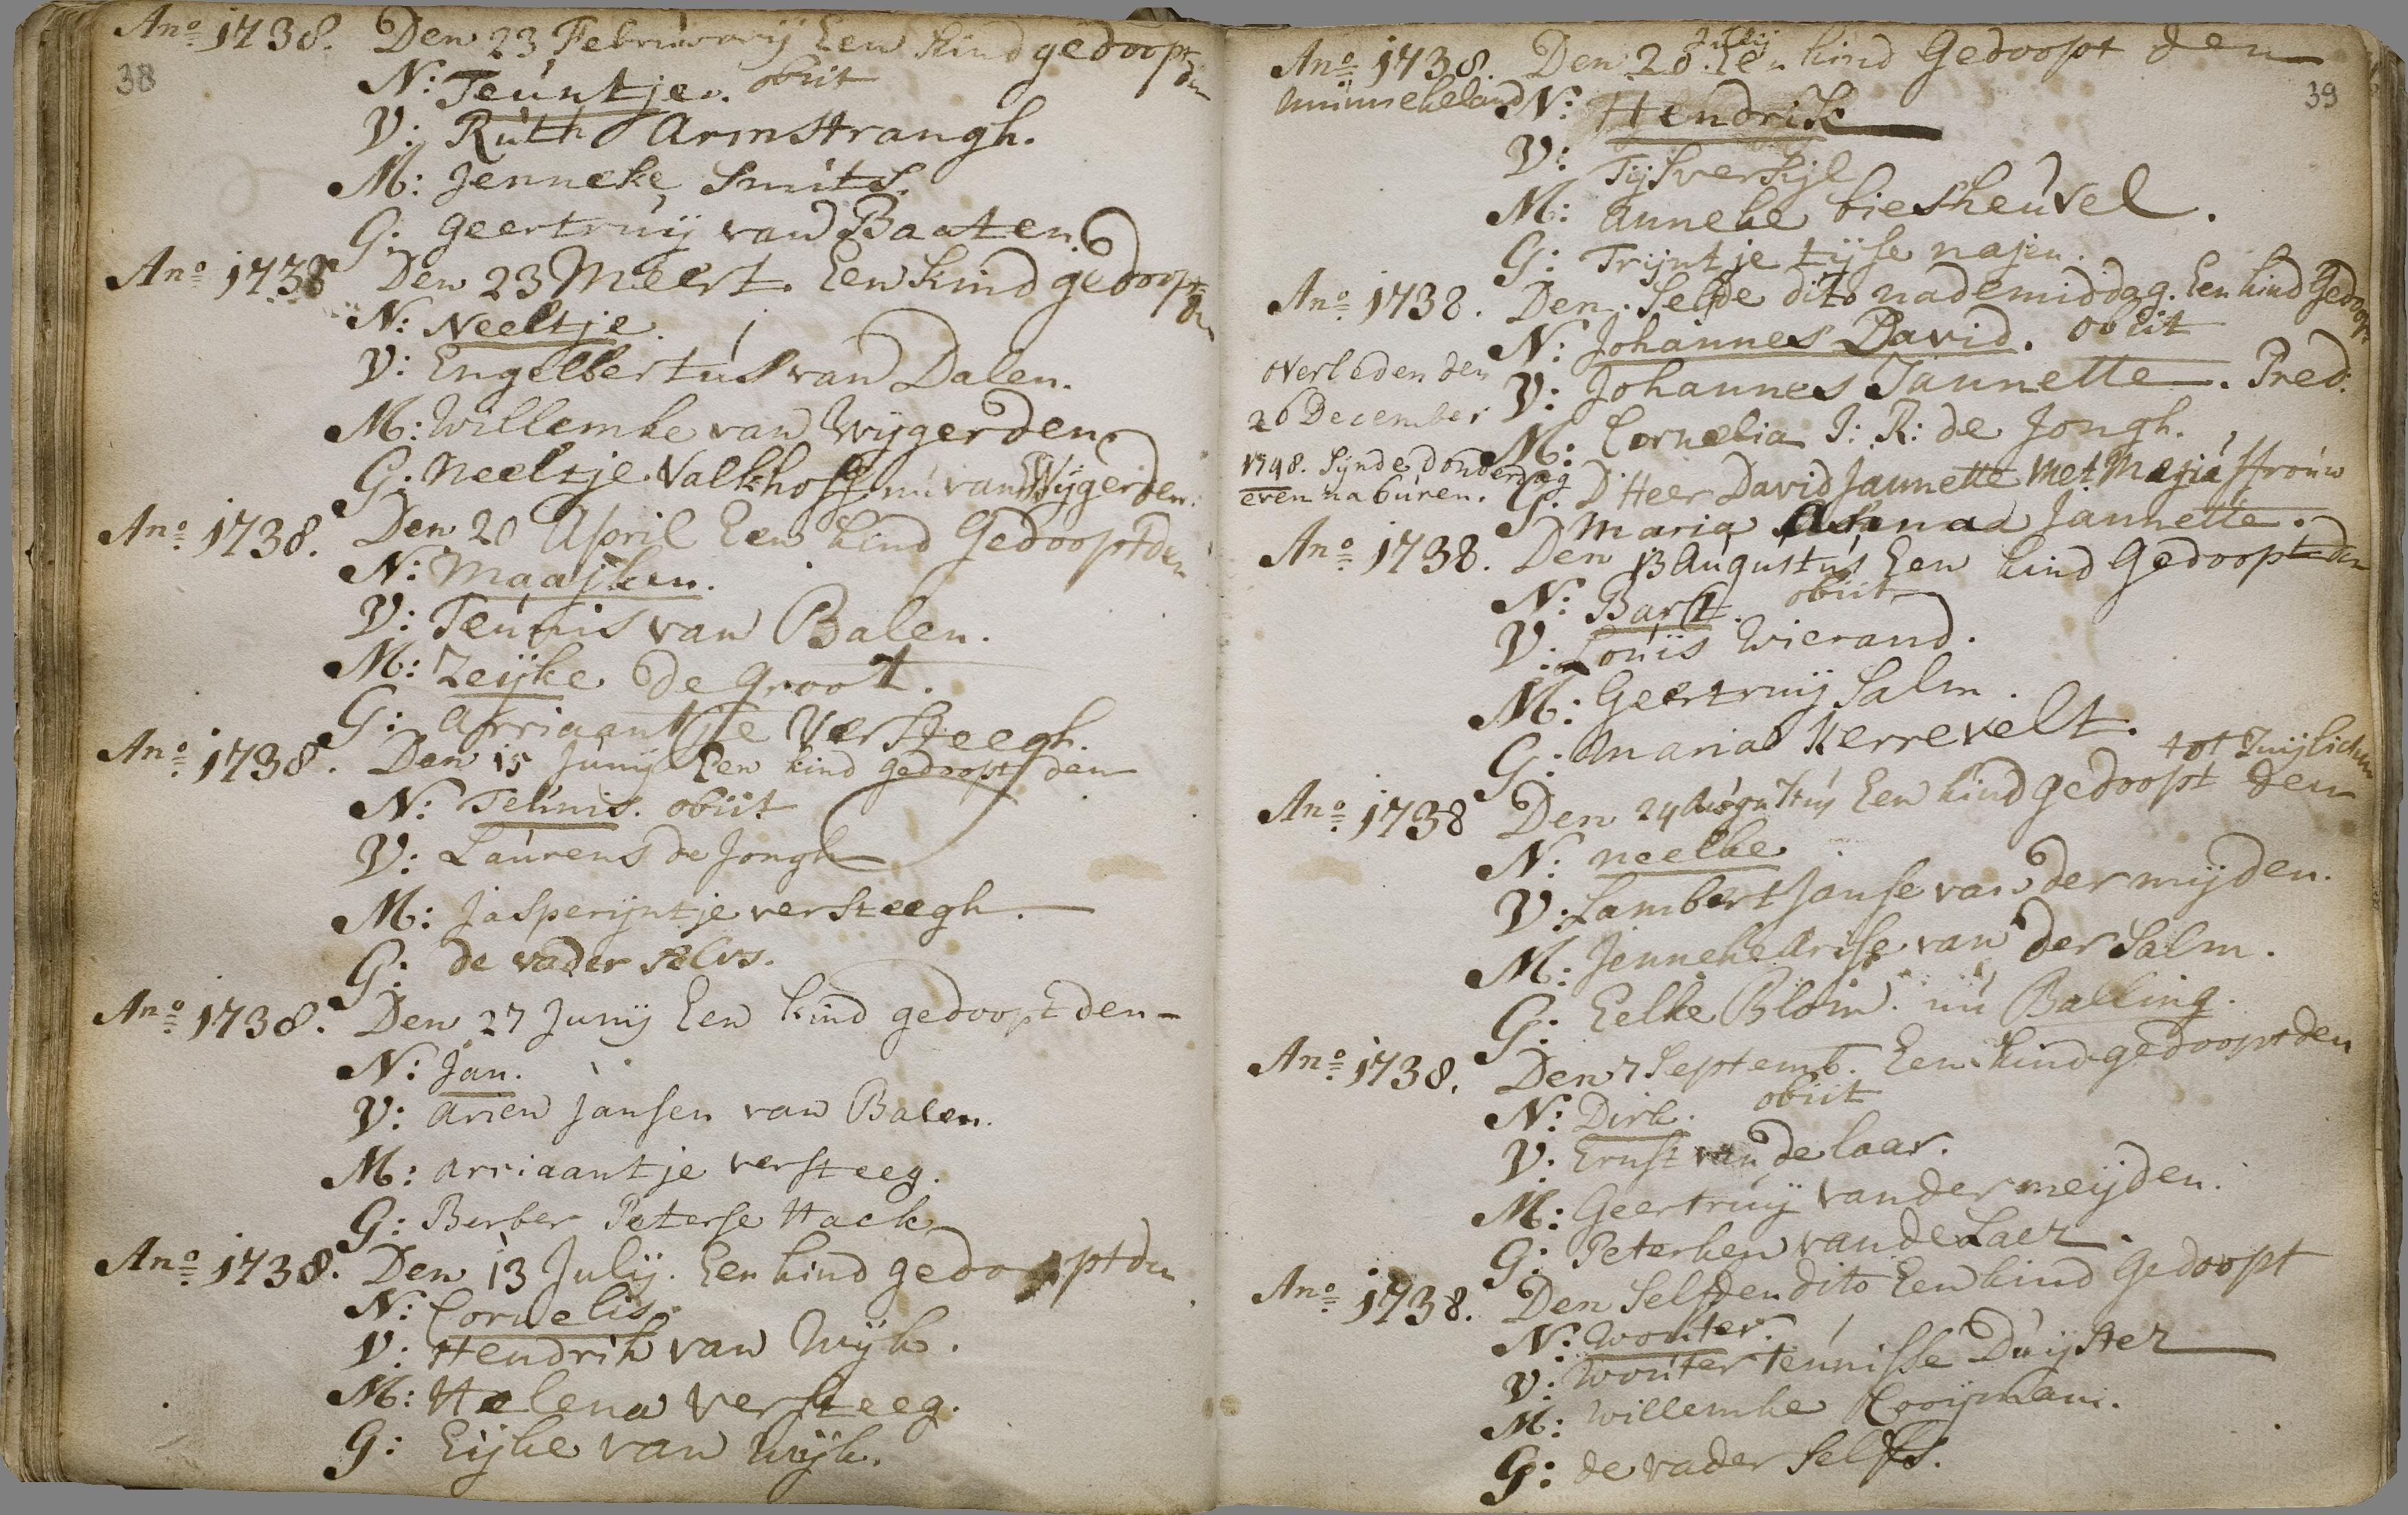 38
Ano 1738. Den 23 Februwarij Een kind gedoopt den
N: Teúntje. obiit
V: Rúth Armstrangh.
M: Jenneke Smits.
G: geertruij van Baaten
Ano 1738 Den 23 Meert. Een kind gedoopt den
N: Neeltje.
V: Engelbertús van Dalen.
M: Willemke van Wijgerden
G: Neeltje Valkhoff nú van Wijgerden.
Ano 1738. Den 20 April Een kind Gedoopt den
N: Maajken.
V: Teúnis van Balen.
M: Zeijke de groot.
G: Arriaantije Versteegh.
Ano 1738. Den 15 Junij Een kind gedoopt den
N: Teúnis. obiit
V: Laúrens de Jongh
M: Jasperijntje versteegh.
G: de vader selvs.
Ano 1738. Den 27 Junij Een kind gedoopt den
N: Jan.
V: Arien Jansen van Balen.
M: Arriaantje versteeg.
G: Berber Peterse Hack
Ano 1738. Den 13 Julij. Een kind gedoopt den
N: Cornelis.
V: Hendrik van Wijk.
M: Helena Versteeg.
G: Eijke van Wijk.
39
Julij
Ano 1738. Den 20. Een kind Gedoopt den
N: Hendrik
V: Tijs verkijl
M: Anneke biesheúvel.
G: Trijntje tijse najen.
Ano 1738. Den selfde dito nademiddag. Een kind Gedoopt
N: Johannes David. obiit
overleden den
V: Johannes Jannette. Pred:
20 December
M: Cornelia J: R: de Jongh.
1748. Sijnde donderdag
G: D'Heer David Jannette Met Mejúffroúw
even na búren.
Maria Anna Jannette.
Ano 1738. Den 13 Aúgústús Een kind Gedoopt den
N: Bart. obiit
V: Loúis Wierand.
M: Geertruij Salm.
G: Maria Kerrevelt.
tot Zuijlichem
Ano 1738 Den 24 Aúgústús Een kind gedoopt den
N: Neelke
V: Lambert Janse van der mijden.
M: Jenneke Arise van der Salm.
G: Eelke Blom. nú Balling.
Ano 1738. Den 7 Septemb. Een kind gedoopt den
N: Dirk. obiit
V: Ernst van de laar.
M: Geertrúij van der meijden.
G: Peterken van de Laer.
Ano 1738. Den Selfden dito Een kind Gedoopt
N: Woúter.
V: Woúter teúnisse Dúijster
M: Willemke Cooijmani.
G: de vader selfs.